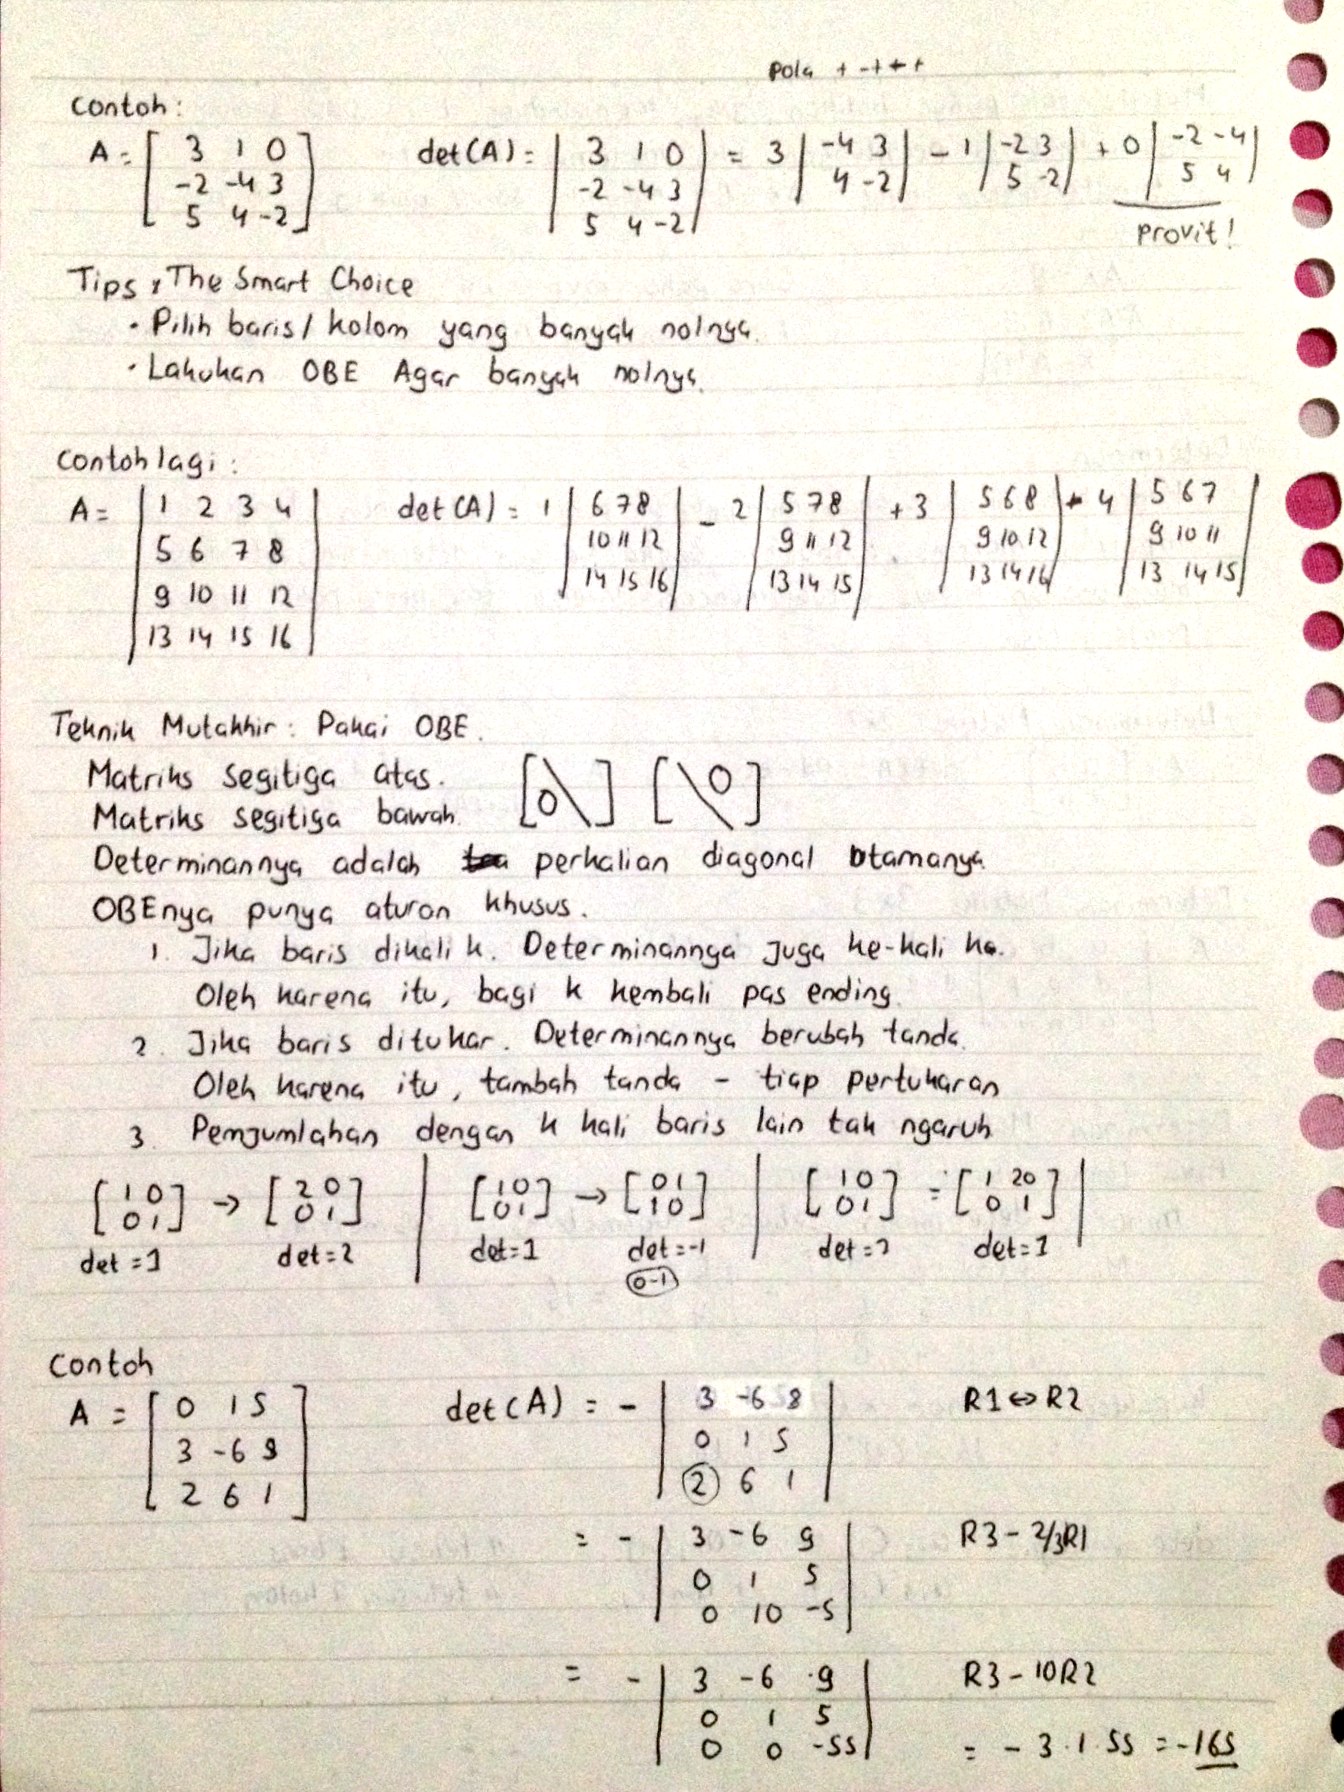 Pola + - + - +
Contoh:
A = [ 3 1 0 det(A) = | 3 1 0 | = 3 | -4 3 | - 1 | -2 3 | + 0 | -2 -4 |
-2 -4 3 -2 -4 3 4 -2 5 -2 5 4
5 4 -2 ] 5 4 -2
Provit!
Tips, The Smart Choice
• Pilih baris / kolom yang banyak nolnya.
• Lakukan OBE Agar banyak nolnya.
Contoh lagi :
A = | 1 2 3 4 | det(A) = 1 | 6 7 8 | - 2 | 5 7 8 | + 3 | 5 6 8 | - 4 | 5 6 7 |
5 6 7 8 10 11 12 9 11 12 9 10 12 9 10 11
9 10 11 12 14 15 16 13 14 15 13 14 16 13 14 15
13 14 15 16
Teknik Mutakhir : Pakai OBE.
Matriks segitiga atas. [0\ ] [ \0]
Matriks segitiga bawah.
Determinannya adalah perkalian diagonal Utamanya.
OBEnya punya aturan khusus.
1. Jika baris dikali k. Determinannya Juga ke-kali ka.
Oleh karena itu, bagi k kembali pas ending.
2. Jika baris ditukar. Determinannya berubah tanda.
Oleh karena itu, tambah tanda - tiap pertukaran
3. Penjumlahan dengan k kali baris lain tak ngaruh
[ 1 0 ] → [ 2 0 ] | [ 1 0 ] → [ 0 1 ] | [ 1 0 ] = [ 1 20 ] |
0 1 0 1 0 1 1 0 0 1 0 1
det = 1 det = 2 det = 1 det = -1 det = 1 det = 1
0-1
Contoh
A = [ 0 1 5 det(A) = - | 3 -6 8 | R1 ↔ R2
3 -6 9 0 1 5
2 6 1 ] 2 6 1
= - | 3 -6 9 | R3 - 2/3R1
0 1 5
0 10 -5
= - | 3 -6 9 | R3 - 10R2
0 1 5
0 0 -55 = - 3 · 1 · 55 = -165